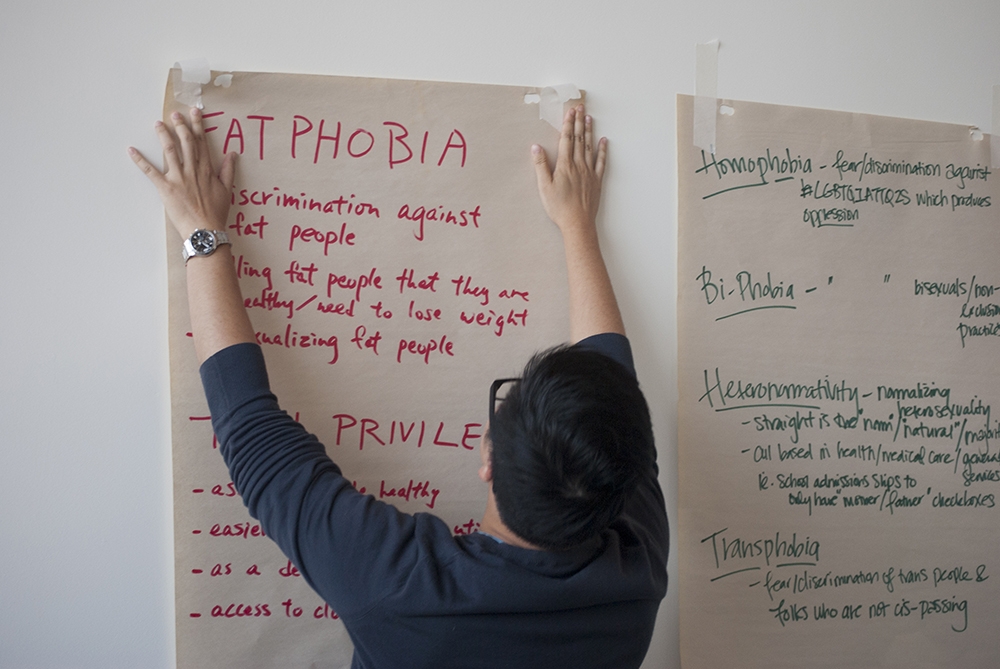 FATPHOBIA
iscrimination against
fat people
ling fat people that they are
ealthy/need to lose weight
- ualizing fat people
T PRIVILE
- as healthy
- easie
- as a de
- access to clo
Homophobia - fear/discrimination against
which produces
oppression
Bi-Phobia - " " bisexuals/non-
exclusion
practice
Heteronormativity - normalizing
heterosexuality
- straight is the "norm"/"natural"/majorit
- all based in health/medical care/general
services
ie. school admissions slips to
only have "mother/father" checkboxes
Transphobia
- fear/discrimination of trans people &
folks who are not cis-passing